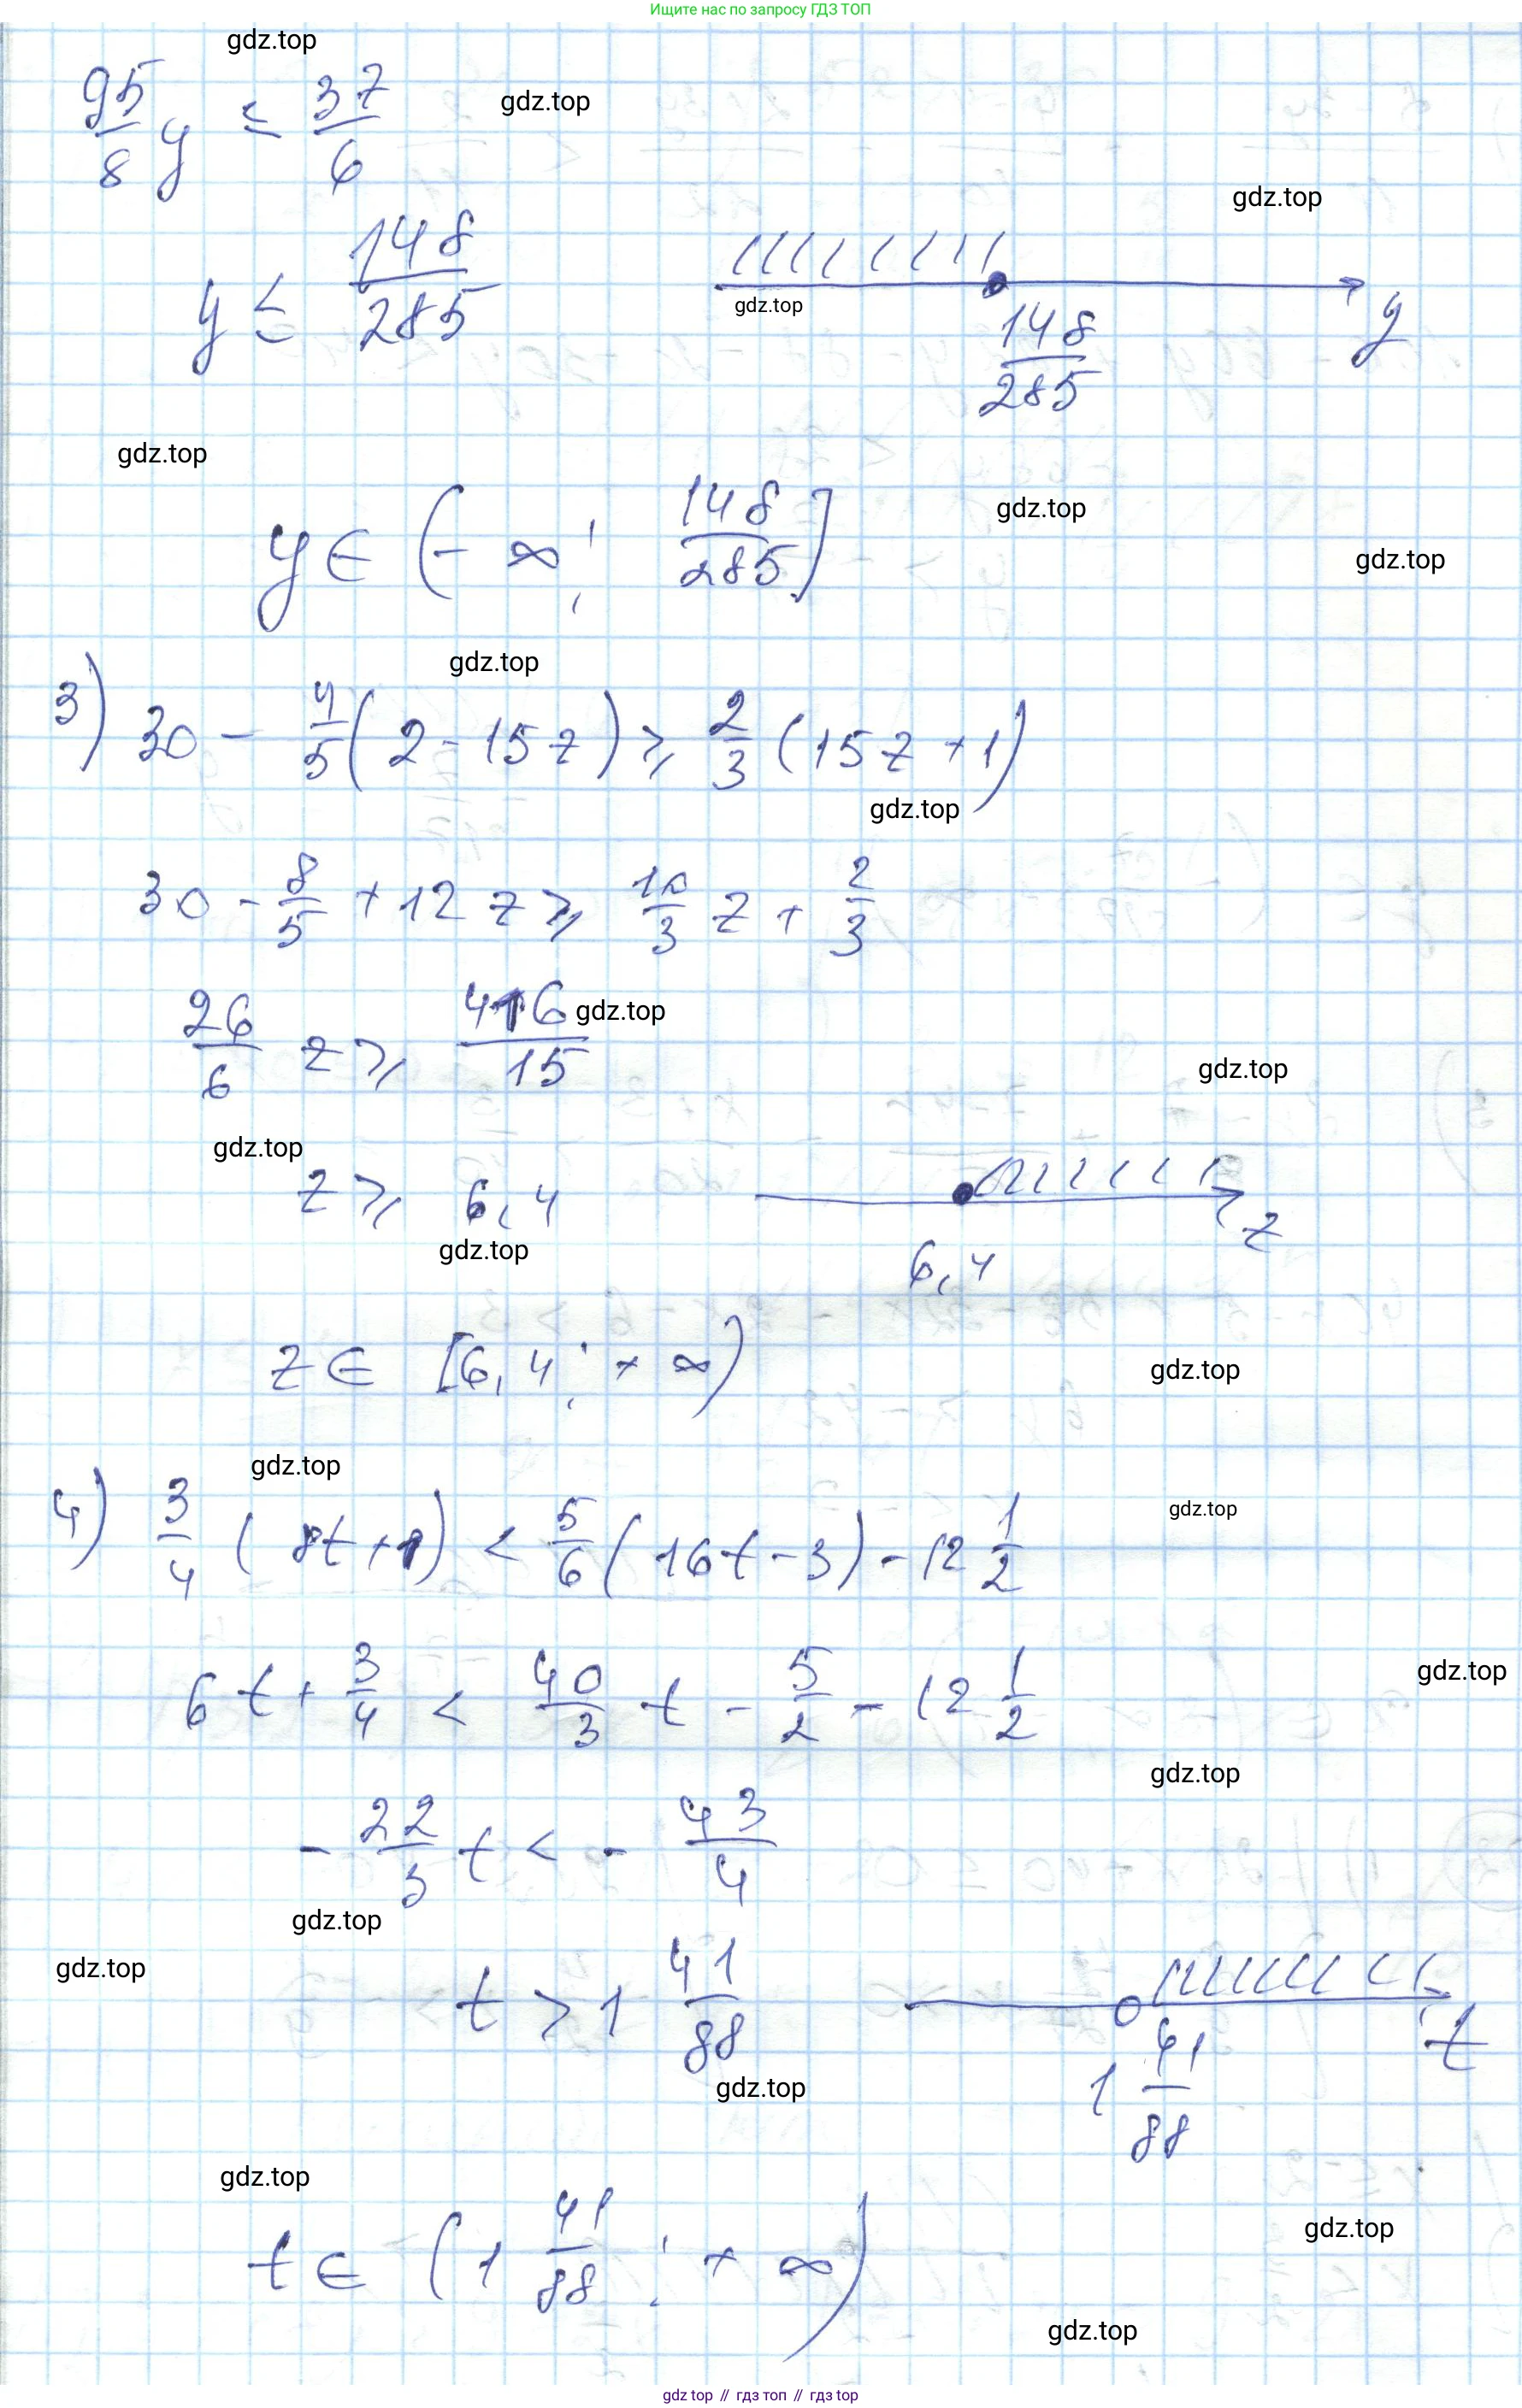 Ищите нас по запросу ГДЗ ТОП
gdz.top
95/8 y ≤ 37/6
gdz.top
gdz.top
y ≤ 148/285
gdz.top
148/285 y
gdz.top
y ∈ (-∞; 148/285]
gdz.top
gdz.top
gdz.top
3) 30 - 4/5 (2 - 15z) ⩾ 2/3 (15z + 1)
gdz.top
30 - 8/5 + 12z ⩾ 10/3 z + 2/3
gdz.top
26/6 z ⩾ 416/15
gdz.top
gdz.top
z ⩾ 6,4
6,4 z
gdz.top
z ∈ [6,4; + ∞)
gdz.top
gdz.top
gdz.top
4) 3/4 (8t + 1) < 5/6 (16t - 3) - 12 1/2
6t + 3/4 < 40/3 t - 5/2 - 12 1/2
gdz.top
gdz.top
- 22/3 t < - 43/4
gdz.top
gdz.top
t > 1 41/88
1 41/88 t
gdz.top
gdz.top
t ∈ (1 41/88; + ∞)
gdz.top
gdz.top
gdz top // гдз топ // гдз top